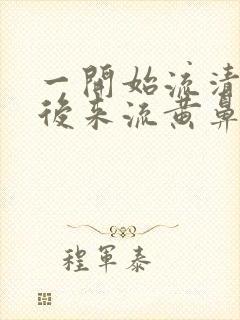 一開始流清
後來流黃鼻
程軍泰